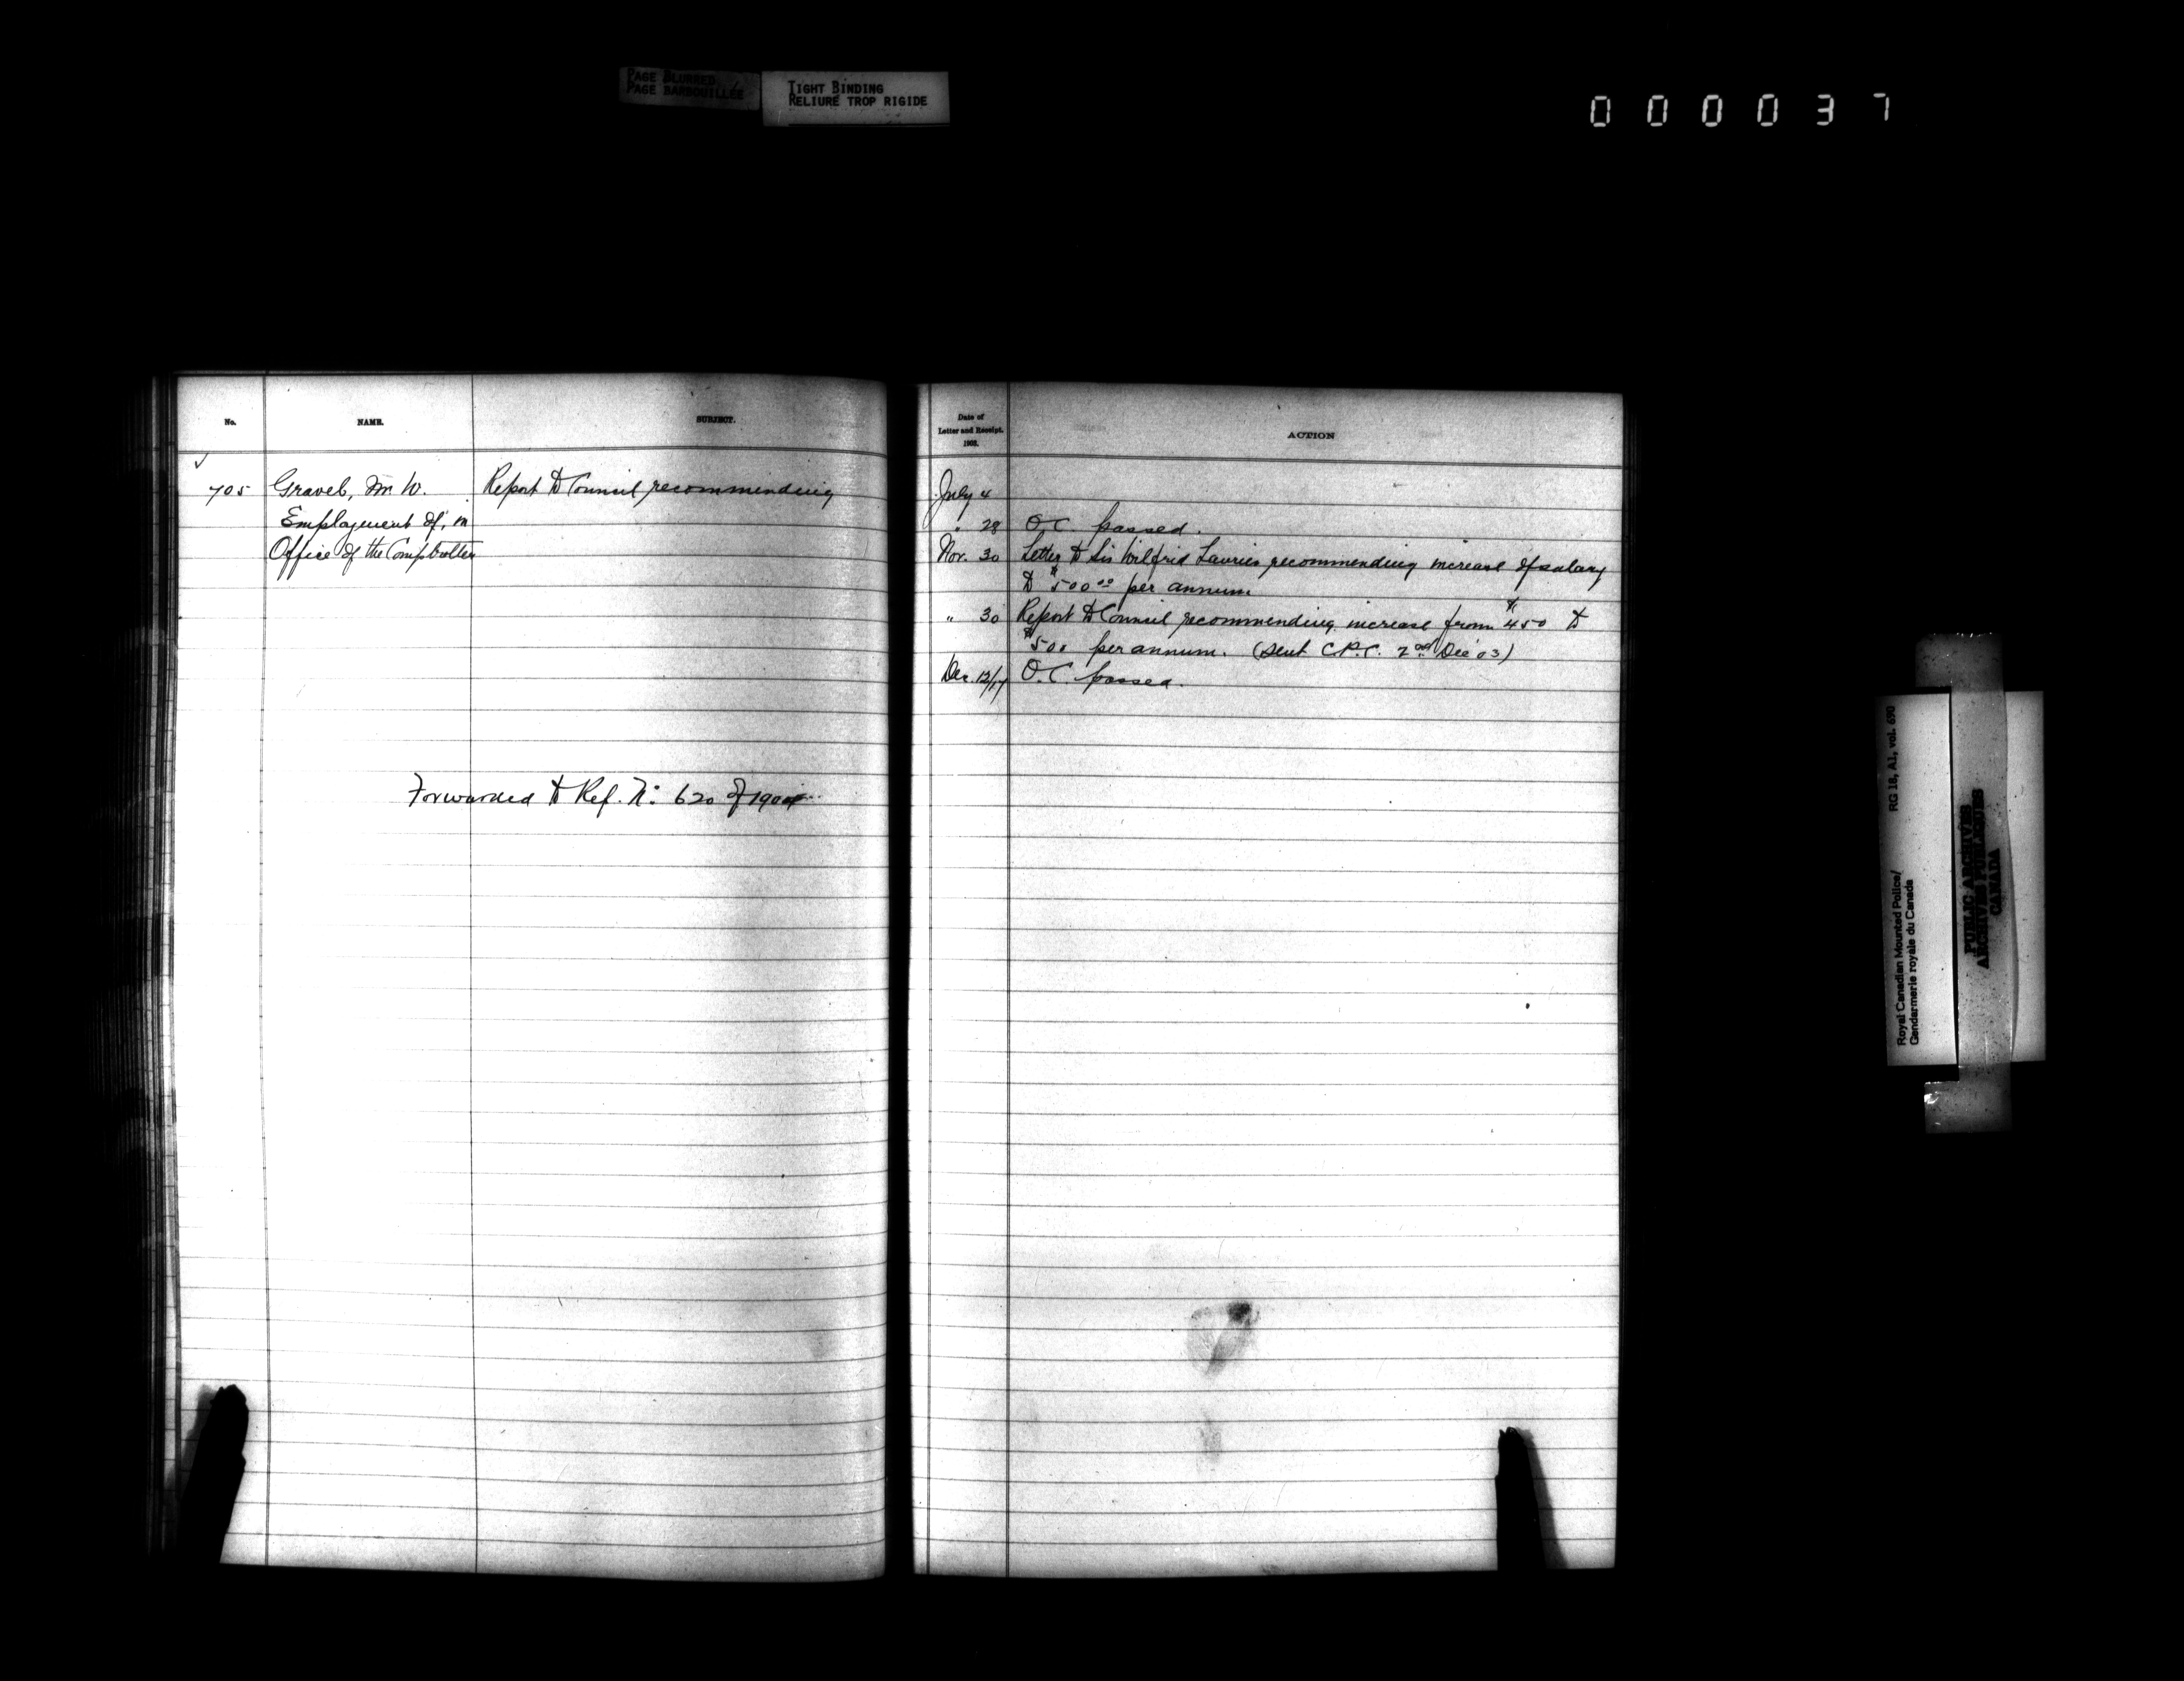 PAGE BLURRED
PAGE BARBOUILLÉE
TIGHT BINDING
RELIURE TROP RIGIDE
000037
No.
NAME.
SUBJECT.
Date of
Letter and Receipt.
1903.
ACTION
705 Gravel, Mr. W. Report to Council recommending
Employment of, in
Office of the Comptroller
July 4
" 28 O.C. passed.
Nov. 30 Letter to Sir Wilfrid Laurier recommending increase of salary
to $500.00 per annum
" 30 Report to Council recommending increase from $450 to
$500 per annum. (Sent C.P.C. 2nd Dec '03)
Dec. 12/17 O.C. passed.
Forwarded to Ref. No. 620 of 1904
RG 18, A1, vol. 690
Royal Canadian Mounted Police/
Gendarmerie royale du Canada
PUBLIC ARCHIVES
ARCHIVES PUBLIQUES
CANADA